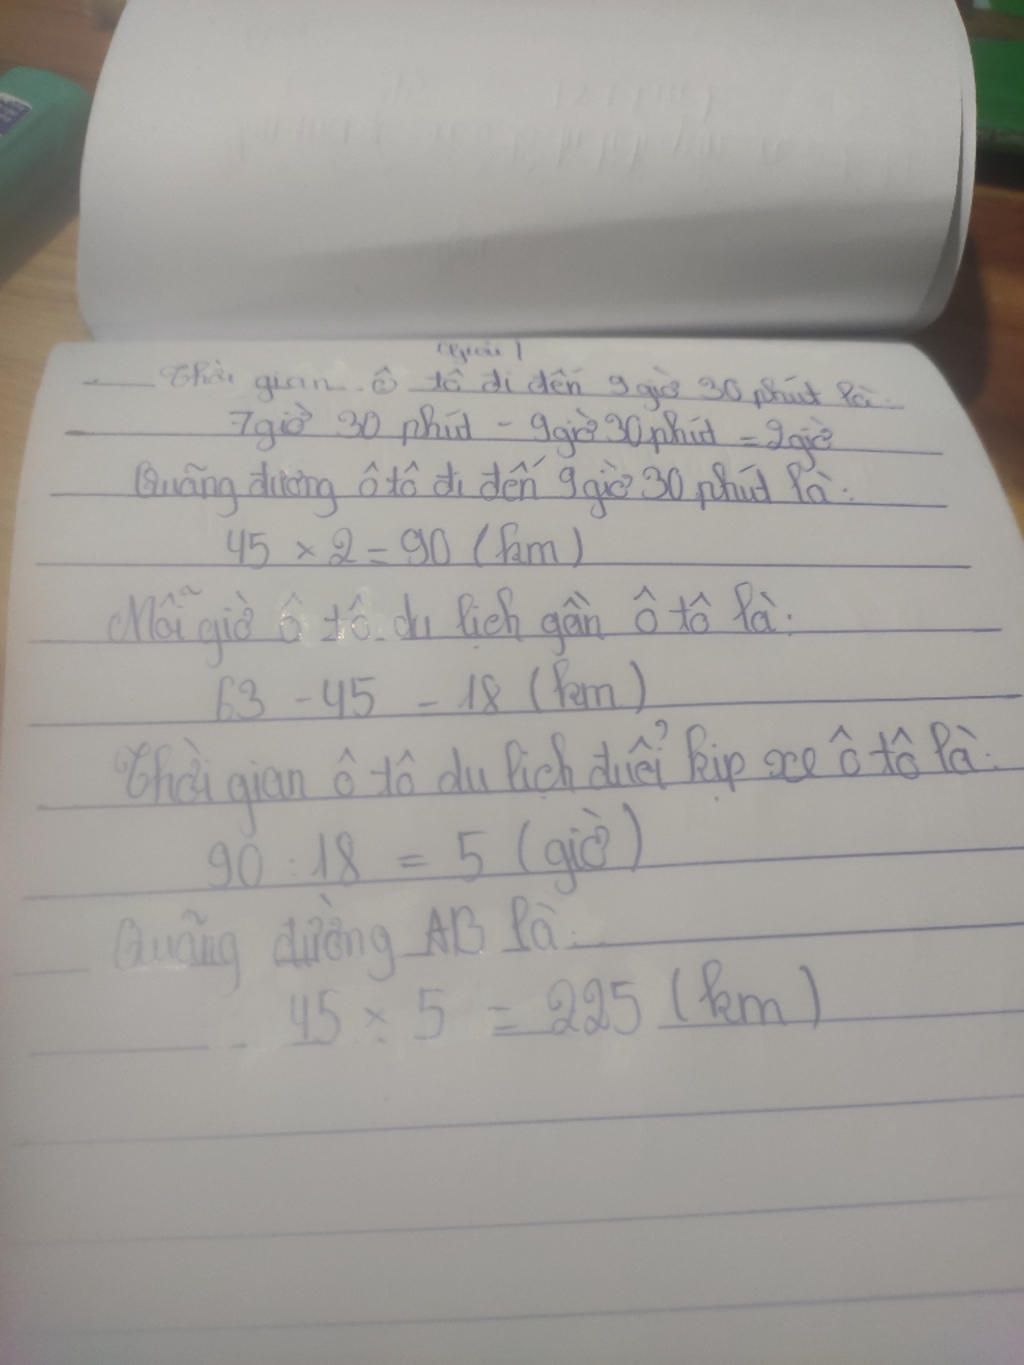 Giải
Thời gian ô tô đi đến 9 giờ 30 phút là:
7giờ 30 phút - 9giờ 30 phút = 2giờ
Quãng dương ô tô đi đến 9 giờ 30 phút là:
45 × 2 = 90 (km)
Mỗi giờ ô tô du lịch gần ô tô là:
63 - 45 = 18 (km)
Thời gian ô tô du lịch đuổi kịp xe ô tô là:
90 : 18 = 5 (giờ)
Quãng đường AB là:
45 × 5 = 225 (km)